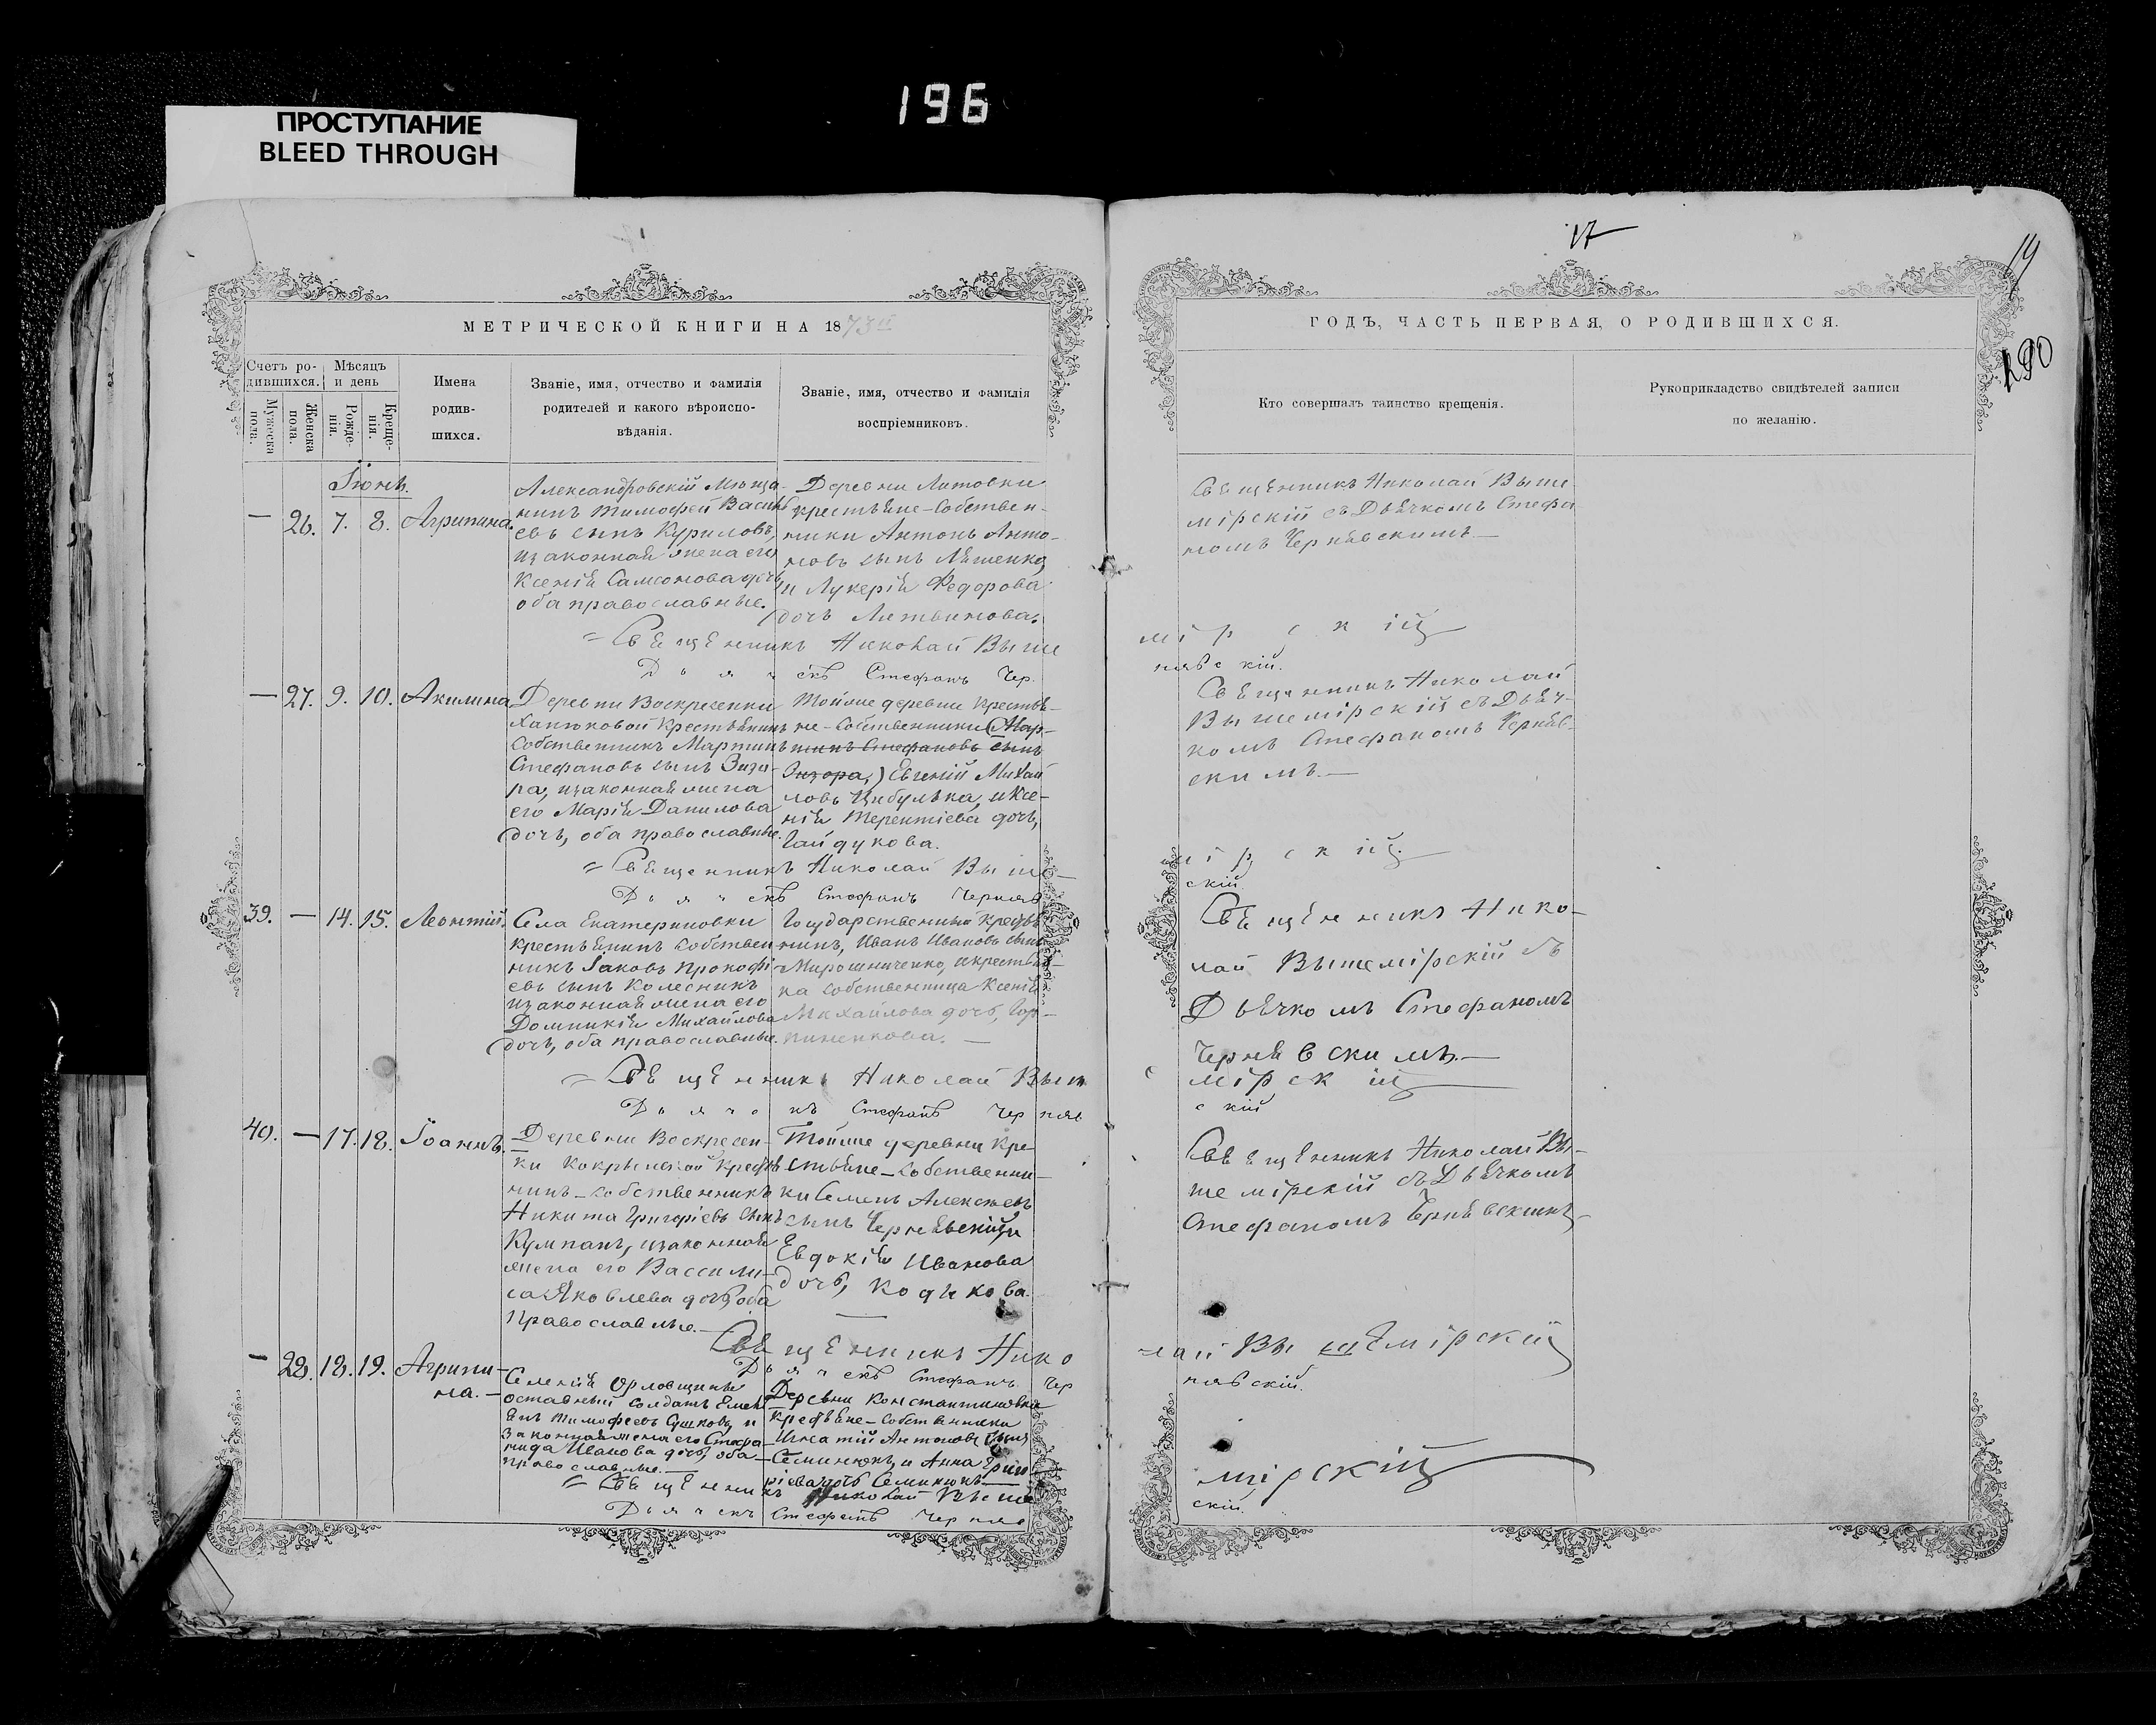 196
ПРОСТУПАНИЕ
BLEED THROUGH
МЕТРИЧЕСКОЙ КНИГИ НА 1873й
Счетъ ро-
дившихся.
Мѣсяцъ
и день
Мужеска
пола.
Женска
пола.
Рожде-
нія.
Креще-
нія.
Имена
родив-
шихся.
Званіе, имя, отчество и фамилія
родителей и какого вѣроиспо-
вѣданія.
Званіе, имя, отчество и фамилія
воспріемниковъ.
Іюнь.
— 26. 7. 8. Агрипина.
Александровскій Мѣща-
нинъ Тимофей Василь
евъ сынъ Куриловъ,
и законная жена его
Ксенія Самсонова дочь
оба православные.
Деревни Литовки
крестьяне-собствен-
ники Антонъ Анто-
новъ сынъ Ляшенко,
и Лукерія Федорова
дочь Литвинова.
Священникъ Николай Выше
Дьячекъ Стефанъ Чер.
— 27. 9. 10. Акилина
Деревни Воскресенки
Ханюковой Крестьянинъ
Собственникъ Мартинъ
Стефановъ сынъ Зизо-
ра, и законная жена
его Марія Данилова
дочь, оба православные.
Тойже деревни Крестья-
не-собственники (Мар-
тинъ Стефановъ сынъ
Зизора,) Евгеній Михай
ловъ Цибулька, и Ксе-
нія Терентіева дочь,
Гайдукова.
Священникъ Николай Выше
Дьячекъ Стефанъ Черняв
39. — 14. 15. Леонтій.
Села Екатериновки
крестьянинъ собствен
никъ Іаковъ Прокофі
евъ сынъ Колесникъ
и законная жена его
Домникія Михайлова
дочь, оба православные.
Государственный крестья
нинъ, Иванъ Ивановъ сынъ
Мирошниченко, и крестьян-
ка собственница Ксенія
Михайлова дочь,
Священникъ Николай Выше
Дьячокъ Стефанъ Черняв
40. — 17. 18. Іоаннъ.
Деревни Воскресен-
ки крестья
нинъ-собственникъ
Никита Григоріевъ сынъ
Кумпанъ, и законная
жена его Васcили-
са Яковлева дочь, оба
православные.—
Тойже деревни Кре-
стьяне-собственни-
ки Семенъ Алексѣевъ
сынъ Чернявскій, и
Евдокія Иванова
дочь, Кодькова.
Священникъ Нико
Дьячекъ Стефанъ Чер
— 28. 18. 19. Агрипи-
на.—
Селенія Орловщины
оставный солдатъ Емел
янъ Тимофеевъ Сушковъ, и
законная жена его Степа-
нида Иванова дочь, оба
православные.—
Деревни Константиновки
крестьяне-собственники
Игнатій Антоновъ сынъ
Семинюкъ, и Анна Григо
ріева дочь Семинюкъ
Священникъ Николай Выше
Дьячекъ Стефанъ Черняв
17
19
190
ГОДЪ, ЧАСТЬ ПЕРВАЯ, О РОДИВШИХСЯ.
Кто совершалъ таинство крещенія.
Рукоприкладство свидѣтелей записи
по желанію.
Священникъ Николай Выше
мірскій съ Дьячкомъ Стефа
номъ Чернявскимъ.—
мірскій
нявскій.
Священникъ Николай
Вышемірскій съ Дьяч-
комъ Стефаномъ Черняв-
скимъ.—
мірскій.
скій.
Священникъ Нико-
лай Вышемірскій съ
Дьячкомъ Стефаномъ
Чернявскимъ.—
мірскій
скій
Священникъ Николай Вы-
шемірскій съ Дьячкомъ
Стефаномъ Чернявскимъ
лай Вышемірскій
нявскій.
мірскій
скій.